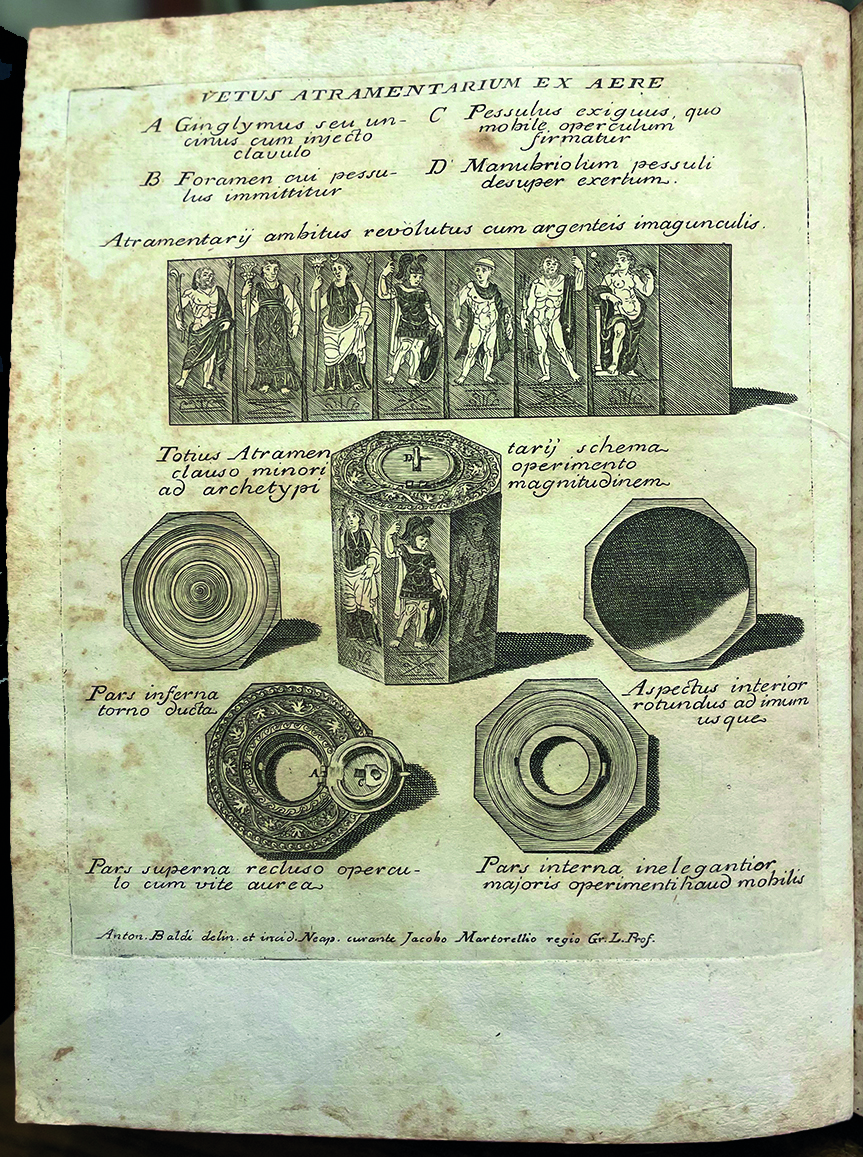 VETUS ATRAMENTARIUM EX AERE
A Ginglymus seu un-
cinus cum injecto
clavulo
B Foramen cui pessu-
lus immittitur
C Pessulus exiguus, quo
mobile operculum
firmatur
D Manubriolum pessuli
desuper exertum.
Atramentarij ambitus revolutus cum argenteis imagunculis.
Totius Atramen tarij schema
clauso minori operimento
ad archetypi magnitudinem
D
Pars inferna
torno ducta
Aspectus interior
rotundus ad imum
usque
B A C
Pars superna recluso opercu-
lo cum vite aurea
Pars interna inelegantior
majoris operimenti haud mobilis
Anton. Baldi delin. et incid. Neap. curante Jacobo Martorellio regio Gr. L. Prof.